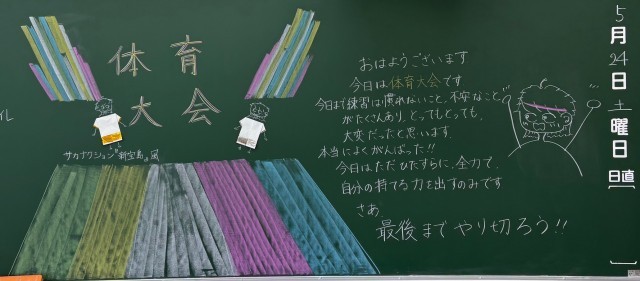 体育
大会
サカナクション"新宝島"風
おはようございます
今日は体育大会です
今日まで練習は慣れないこと、不安なこと
がたくさんあり、とってもとっても、
大変だったと思います。
本当によくがんばった!!
今日はただひたすらに、全力で、
自分の持てる力を出すのみです
さあ
最後までやり切ろう!!
5月24日土曜日
日直